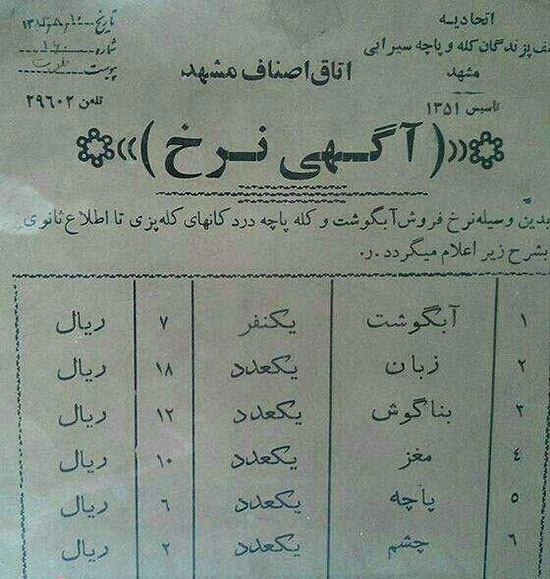 اتحادیه
صنف پزندگان کله و پاچه سیرابی
مشهد
تاسیس ۱۳۵۱
اتاق اصناف مشهد
تاریخ
شماره
پیوست
تلفن ۲۹۶۰۲
«(آگهی نرخ)»
بدین وسیله نرخ فروش آبگوشت و کله پاچه در دکانهای کله‌پزی تا اطلاع ثانوی
بشرح زیر اعلام میگردد.ر.
۱ آبگوشت یکنفر ۷ ریال
۲ زبان یکعدد ۱۸ ریال
۳ بناگوش یکعدد ۱۲ ریال
۴ مغز یکعدد ۱۰ ریال
۵ پاچه یکعدد ۶ ریال
۶ چشم یکعدد ۲ ریال